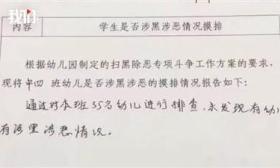 我们
内容
学生是否涉黑涉恶情况摸排
根据幼儿园制定的扫黑除恶专项斗争工作方案的要求，
现将中四班幼儿是否涉黑涉恶的摸排情况报告如下：
通过对本班35名幼儿进行排查，未发现有幼儿
有涉黑涉恶情况。